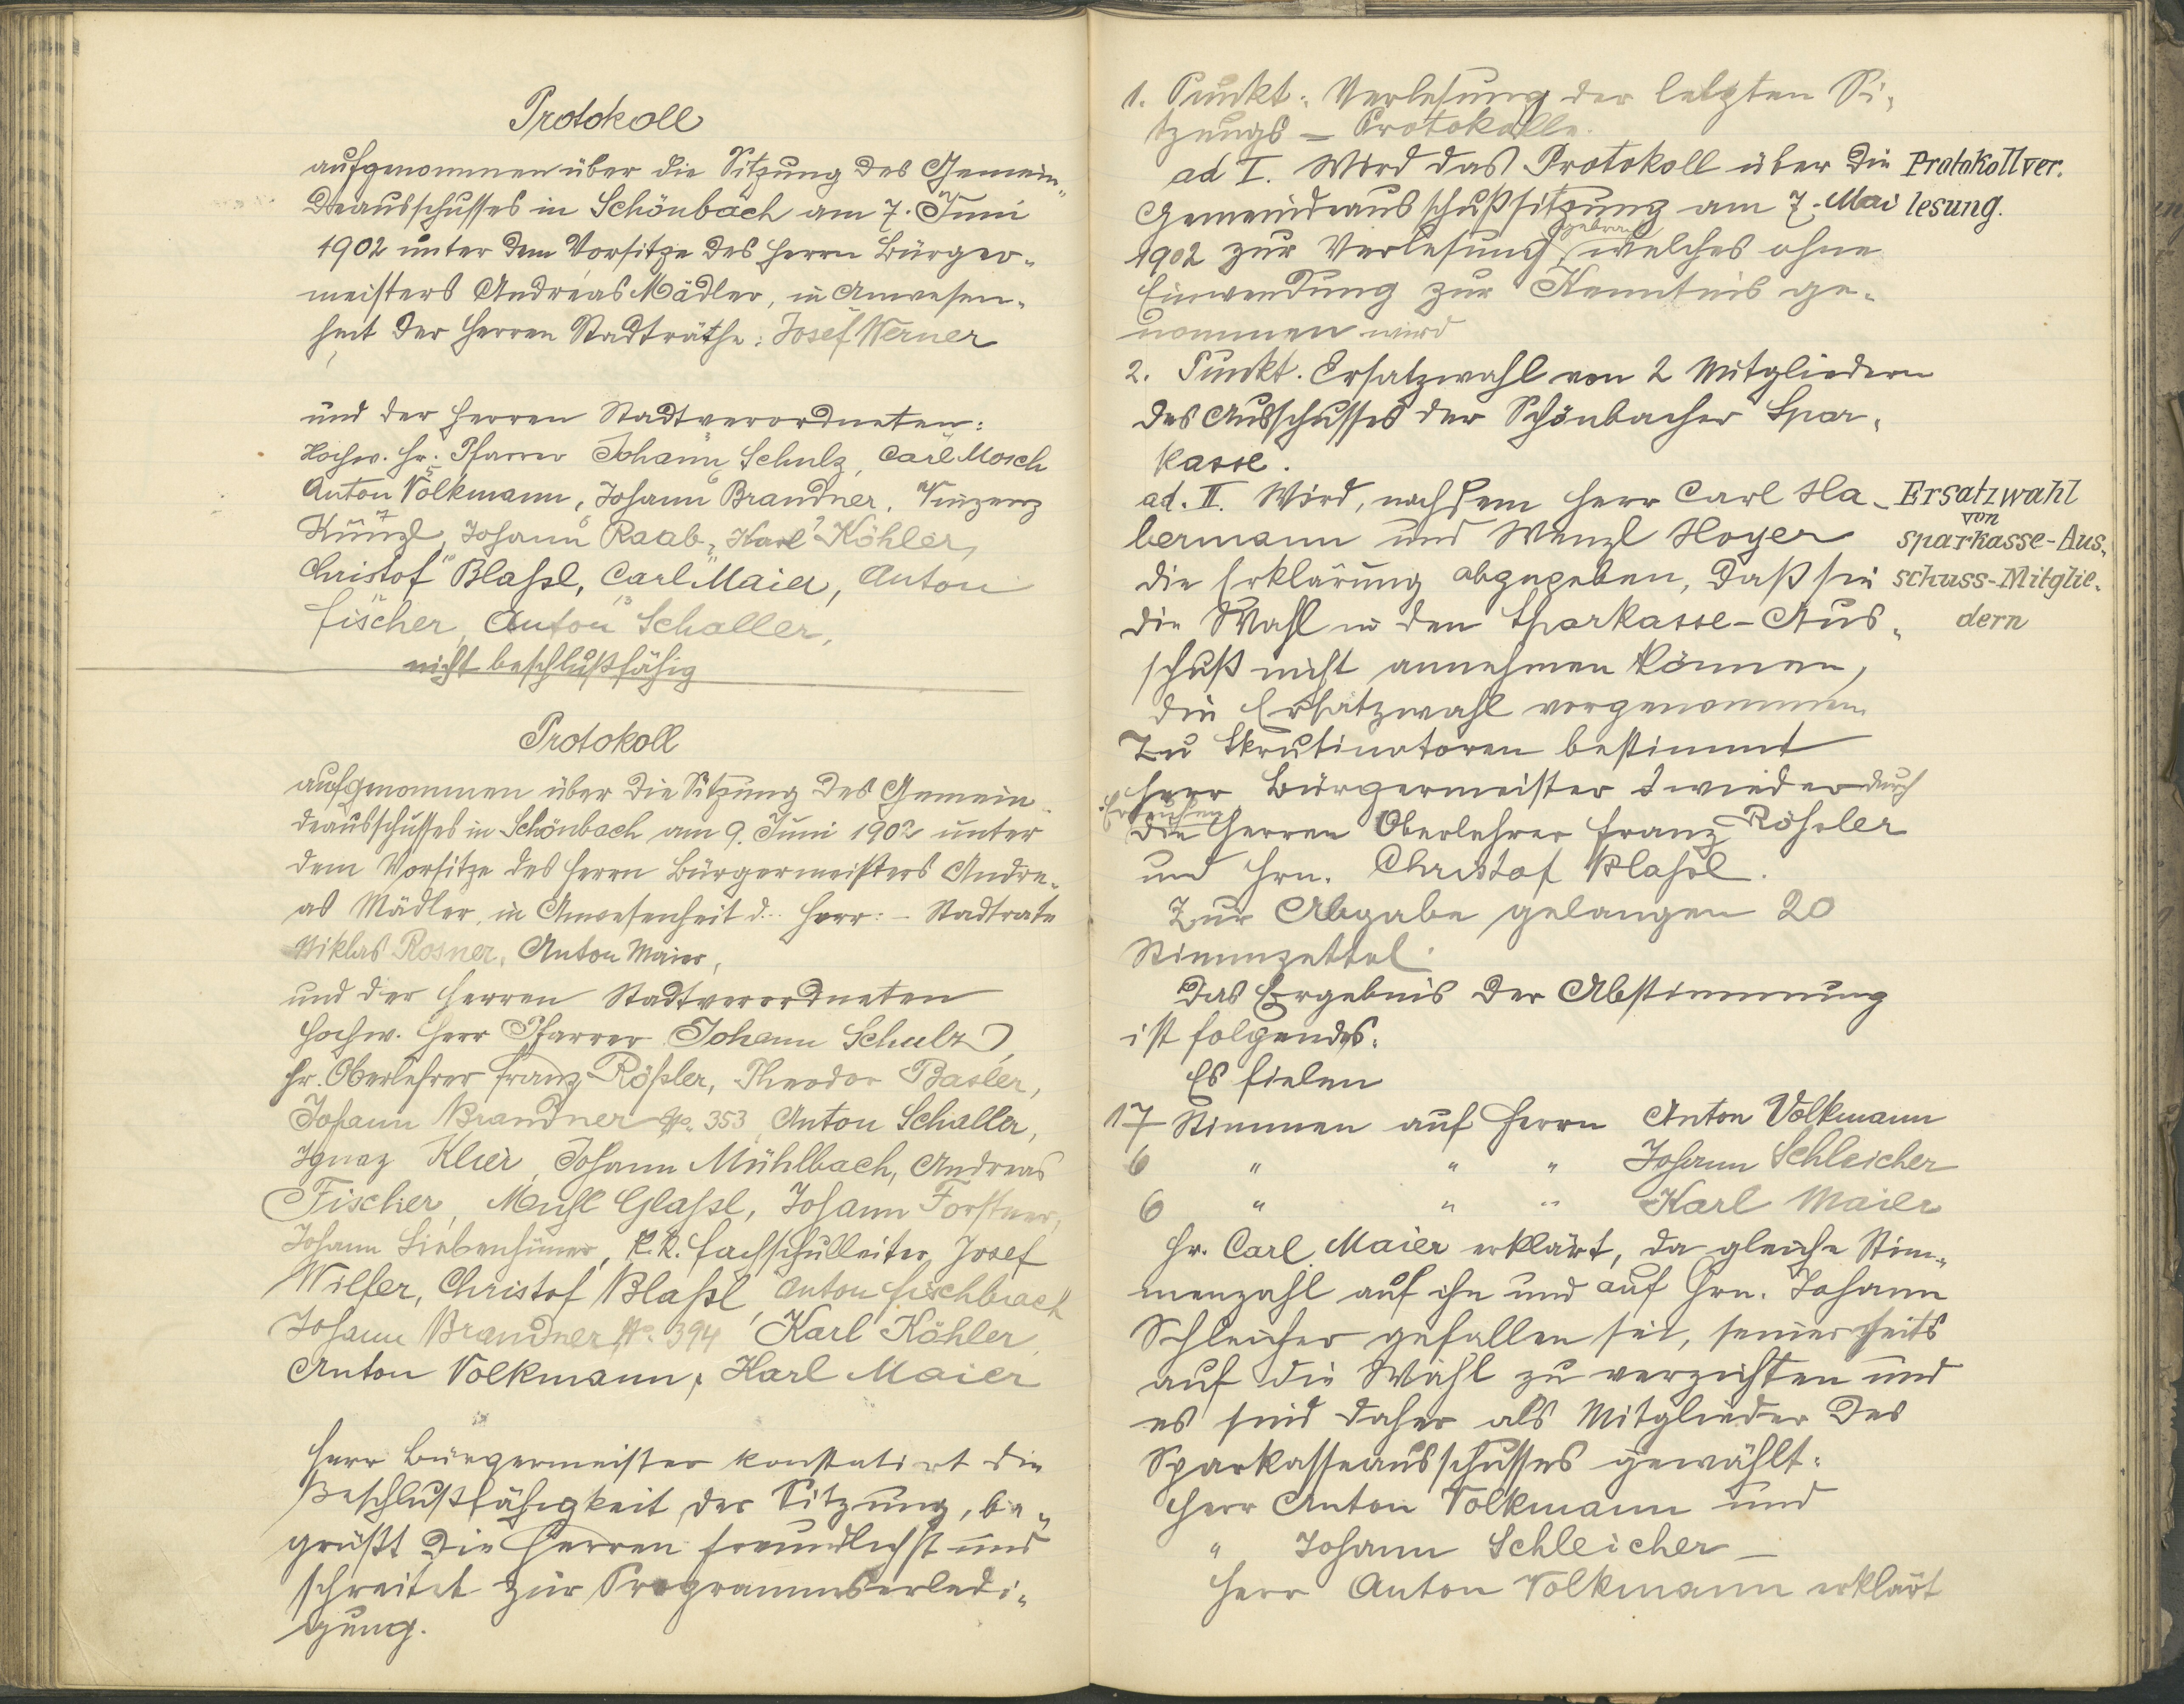 Protokoll
aufgenommen über die Sitzung des Gemein„
deausschusses in Schönbach am 7. Juni
1902 unter dem Vorsitze des Herrn Bürger„
meisters Andreas Mädler, in Anwesen„
heit der Herren Stadträthe: Josef Werner
und der Herren Stadtverordneten:
Hochw. Hr. Pfarrer Johann Schulz, Carl Mosch
Anton Volkmann, Johann Brandner, Vinzenz
Künzl, Johann Raab, Karl Köhler,
Christof Blaßl, Carl Maier, Anton
Fischer, Anton Schaller,
nicht beschlußfähig
Protokoll
aufgenommen über die Sitzung des Gemein„
deausschusses in Schönbach am 9. Juni 1902 unter
dem Vorsitze des Herrn Bürgermeisters Andre„
as Mädler, in Anwesenheit d. Herr: – Stadtrate
Niklas Rosner, Anton Maier,
und der Herren Stadtverordneten
Hochw. Herr Pfarrer Johann Schulz,
Hr. Oberlehrer Franz Rößler, Theodor Basler,
Johann Brandner No. 353, Anton Schaller,
Ignaz Klier, Johann Mühlbach, Andreas
Fischer, Glaßl, Johann Forstner,
Johann Siebenhüner, k.k. Fachschulleiter Josef
Wilfer, Christof Blaßl, Anton Fischbach
Johann Brandner No. 394, Karl Köhler,
Anton Volkmann, Karl Maier
Herr Bürgermeister konstatirt die
Beschlußfähigkeit der Sitzung, be„
grüßt die Herren freundlichst und
schreitet zur Programmserledi„
gung.
1. Punkt: Verlesung der letzten Si„
tzungs – Protokolle.
ad I. Wird das Protokoll über die
Gemeindeausschußsitzung am 7. Mai
1902 zur Verlesung gebracht, welches ohne
Einwendung zur Kenntnis ge„
nommen wird
Protokollver.
lesung.
2. Punkt. Ersatzwahl von 2 Mitgliedern
des Ausschusses der Schönbacher Spar„
kasse.
ad. II. Wird, nachdem Herr Carl Ha„
bermann und Wenzl Hoyer
die Erklärung abgegeben, daß sie
die Wahl in den Sparkasse-Aus„
schuß nicht annehmen können,
die Ersatzwahl vorgenommen
Ersatzwahl
von
Sparkasse-Aus„
schuss-Mitglie„
dern
Zu Skrutinatoren bestimmt
Herr Bürgermeister durch
die Herren Oberlehrer Franz Rößler
und Hrn. Christof Blaßl.
Zur Abgabe gelangen 20
Stimmzettel.
Das Ergebnis der Abstimmung
ist folgendes:
Es fielen
17 Stimmen auf Herrn Anton Volkmann
6 " " " Johann Schleicher
6 " " " Karl Maier
Hr. Carl Maier erklärt, da gleiche Stim„
menzahl auf ihn und auf Hrn. Johann
Schleicher gefallen sei, seinerseits
auf die Wahl zu verzichten und
es sind daher als Mitglieder des
Sparkasseausschusses gewählt:
Herr Anton Volkmann und
" Johann Schleicher –
Herr Anton Volkmann erklärt